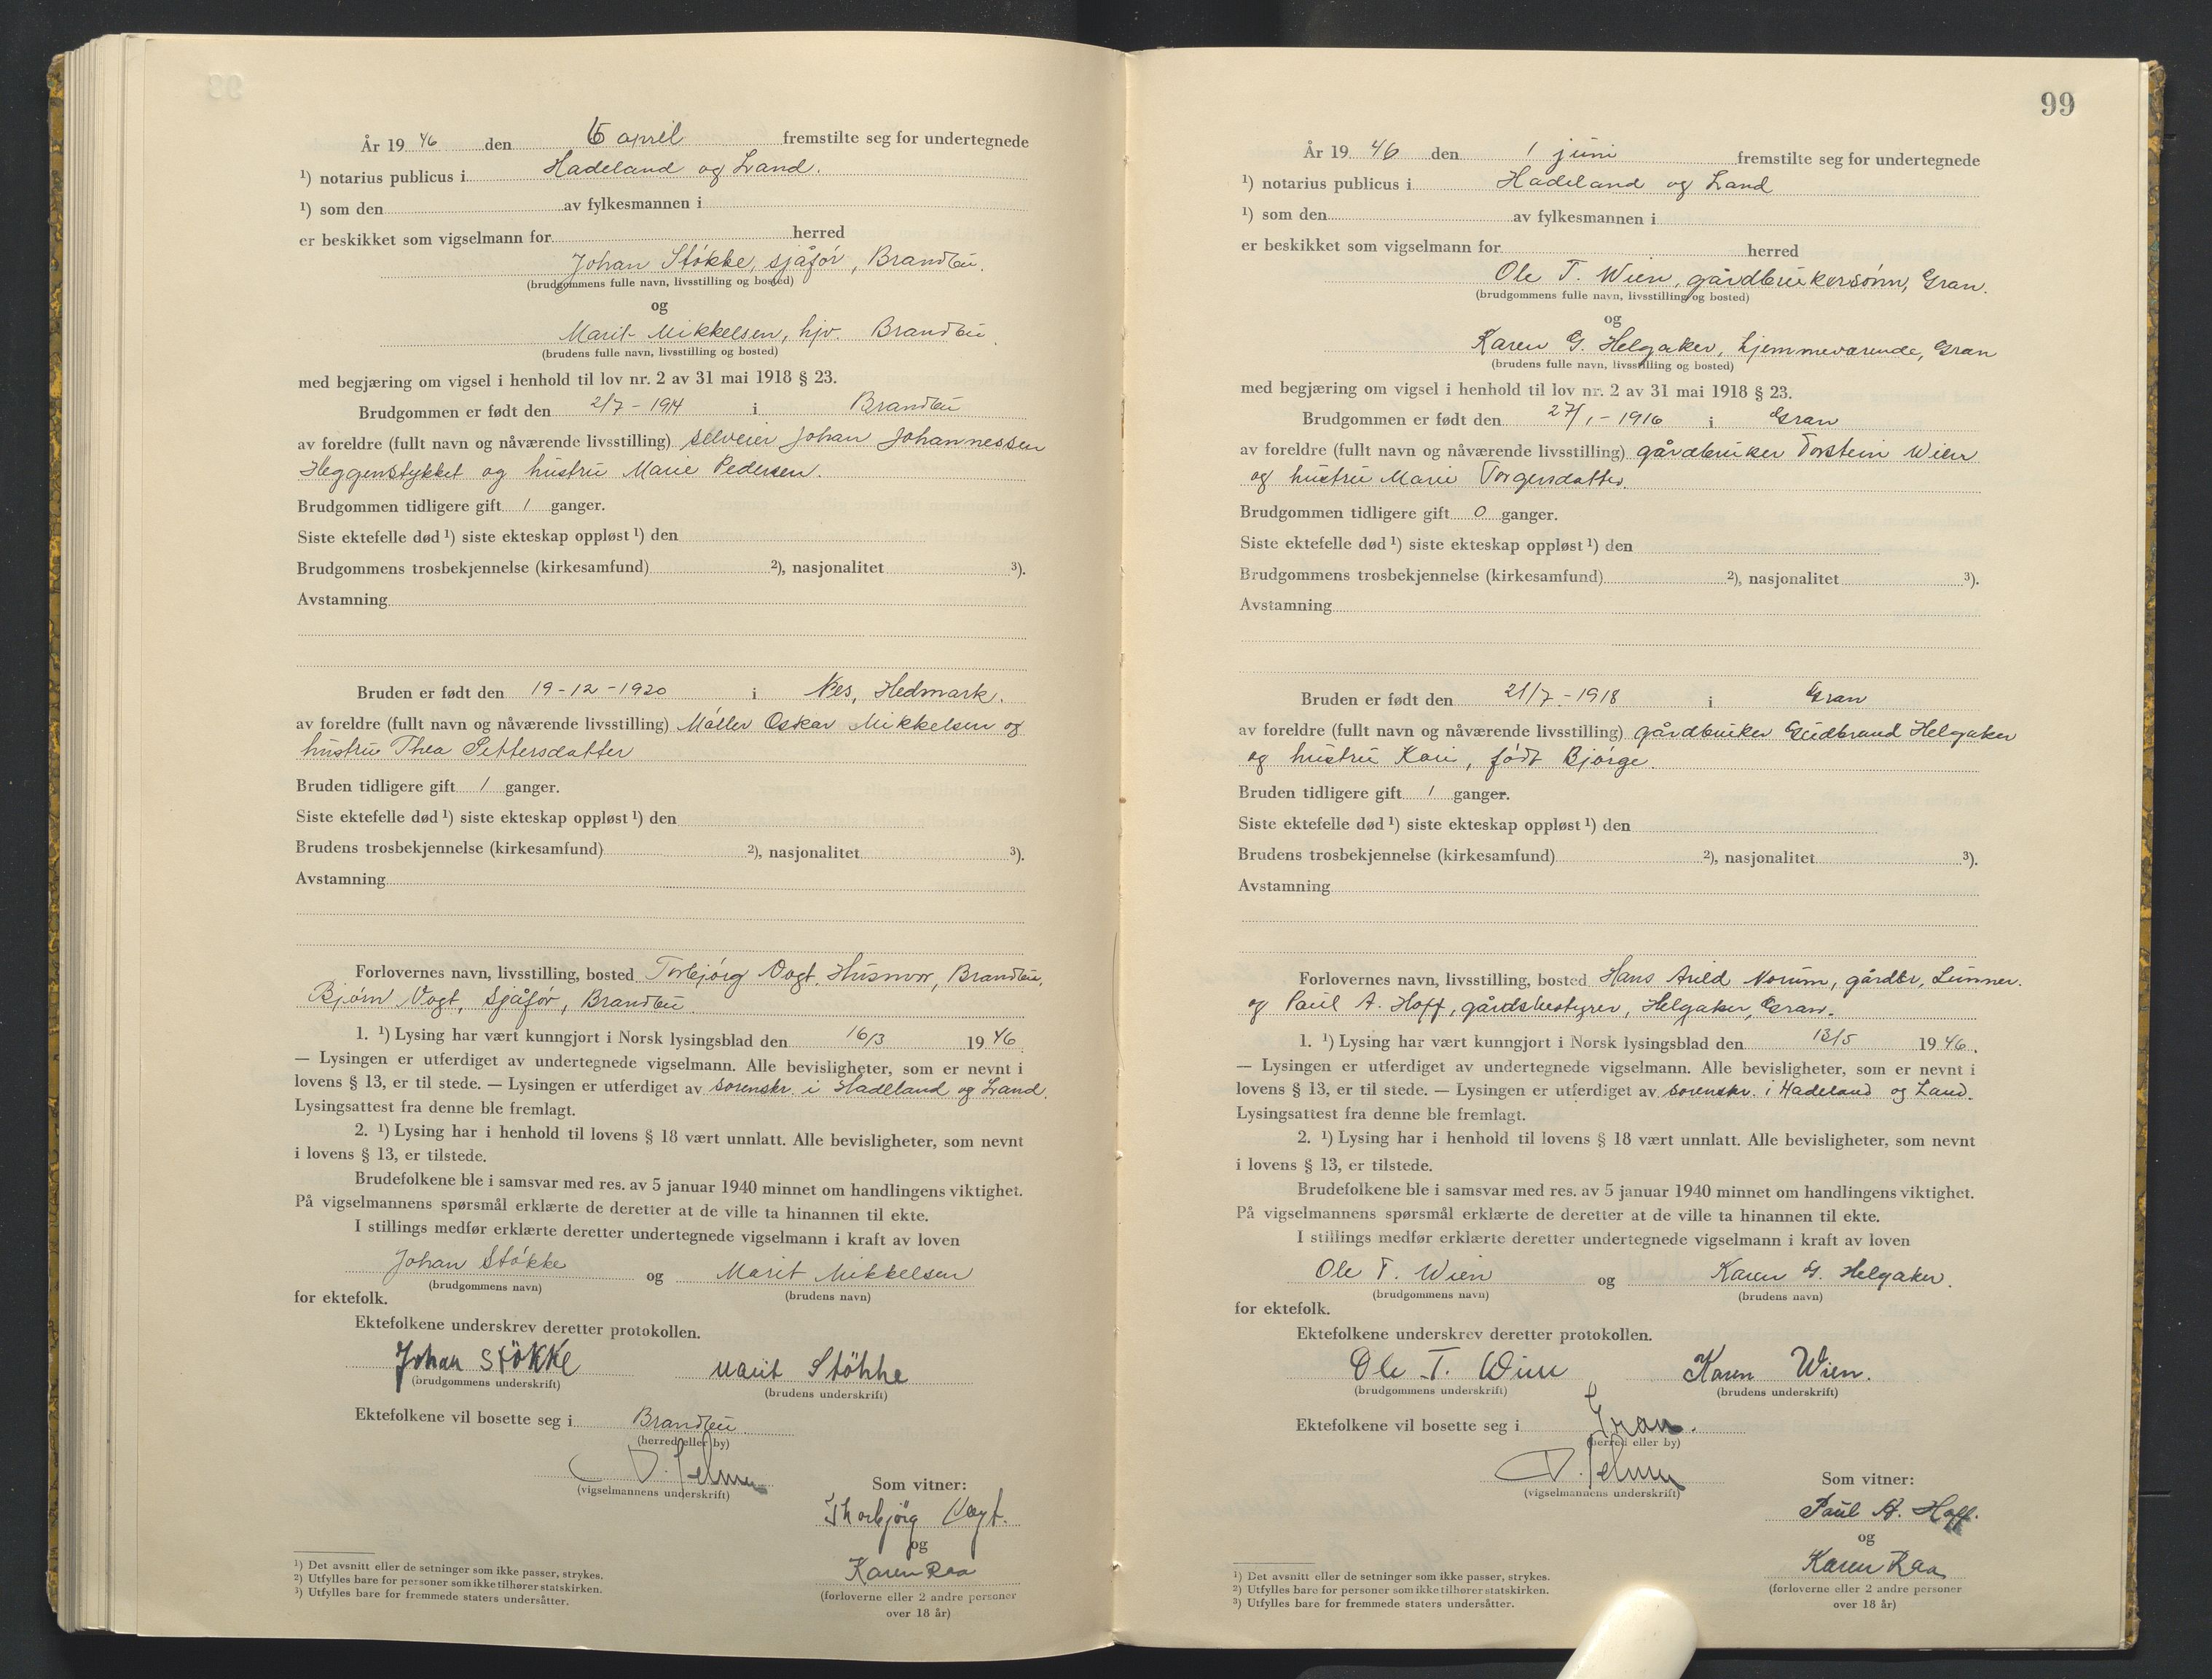 År 19 46 den 6 april fremstilte seg for undertegnede
¹) notarius publicus i Hadeland og Land.
¹) som den av fylkesmannen i
er beskikket som vigselmann for herred
Johan Støkke, sjåfør, Brandbu.
(brudgommens fulle navn, livsstilling og bosted)
og
Marit Mikkelsen, hjv. Brandbu.
(brudens fulle navn, livsstilling og bosted)
med begjæring om vigsel i henhold til lov nr. 2 av 31 mai 1918 § 23.
Brudgommen er født den 2/7 - 1914 i Brandbu
av foreldre (fullt navn og nåværende livsstilling) selveier Johan Johannessen
Heggenstykket og hustru Marie Pedersen.
Brudgommen tidligere gift 1 ganger.
Siste ektefelle død ¹) siste ekteskap oppløst ¹) den
Brudgommens trosbekjennelse (kirkesamfund) ²), nasjonalitet ³).
Avstamning
Bruden er født den 19-12-1920 i Nes, Hedmark.
av foreldre (fullt navn og nåværende livsstilling) Møller Oskar Mikkelsen og
hustru Thea Pettersdatter
Bruden tidligere gift 1 ganger.
Siste ektefelle død ¹) siste ekteskap oppløst ¹) den
Brudens trosbekjennelse (kirkesamfund) ²), nasjonalitet ³).
Avstamning
Forlovernes navn, livsstilling, bosted Torbjørg Vogt, Husmor, Brandbu,
Bjørn Vogt, sjåfør, Brandbu.
1. ¹) Lysing har vært kunngjort i Norsk lysingsblad den 16/3 19 46.
— Lysingen er utferdiget av undertegnede vigselmann. Alle bevisligheter, som er nevnt i
lovens § 13, er til stede. — Lysingen er utferdiget av sorenskr. i Hadeland og Land.
Lysingsattest fra denne ble fremlagt.
2. ¹) Lysing har i henhold til lovens § 18 vært unnlatt. Alle bevisligheter, som nevnt
i lovens § 13, er tilstede.
Brudefolkene ble i samsvar med res. av 5 januar 1940 minnet om handlingens viktighet.
På vigselmannens spørsmål erklærte de deretter at de ville ta hinannen til ekte.
I stillings medfør erklærte deretter undertegnede vigselmann i kraft av loven
Johan Støkke og Marit Mikkelsen
(brudgommens navn) (brudens navn)
for ektefolk.
Ektefolkene underskrev deretter protokollen.
Johan Stökke Marit Stökke
(brudgommens underskrift) (brudens underskrift)
Ektefolkene vil bosette seg i Brandbu
(herred eller by)
(vigselmannens underskrift)
Som vitner:
Thorbjörg Vogt.
og
Karen Raa
(forloverne eller 2 andre personer
over 18 år)
¹) Det avsnitt eller de setninger som ikke passer, strykes.
²) Utfylles bare for personer som ikke tilhører statskirken.
³) Utfylles bare for fremmede staters undersåtter.
99
År 19 46 den 1 juni fremstilte seg for undertegnede
¹) notarius publicus i Hadeland og Land
¹) som den av fylkesmannen i
er beskikket som vigselmann for herred
Ole T. Wien, gårdbrukersønn, Gran.
(brudgommens fulle navn, livsstilling og bosted)
og
Karen G. Helgaker, hjemmeværende, Gran
(brudens fulle navn, livsstilling og bosted)
med begjæring om vigsel i henhold til lov nr. 2 av 31 mai 1918 § 23.
Brudgommen er født den 27/1 - 1916 i Gran
av foreldre (fullt navn og nåværende livsstilling) gårdbruker Torstein Wien
og hustru Marie Torgersdatter.
Brudgommen tidligere gift 0 ganger.
Siste ektefelle død ¹) siste ekteskap oppløst ¹) den
Brudgommens trosbekjennelse (kirkesamfund) ²), nasjonalitet ³).
Avstamning
Bruden er født den 21/7 - 1918 i Gran
av foreldre (fullt navn og nåværende livsstilling) gårdbruker Gudbrand Helgaker
og hustru Kari, født Bjørge.
Bruden tidligere gift 1 ganger.
Siste ektefelle død ¹) siste ekteskap oppløst ¹) den
Brudens trosbekjennelse (kirkesamfund) ²), nasjonalitet ³).
Avstamning
Forlovernes navn, livsstilling, bosted Hans Arild Norum, gårdbr, Lunner.
og Paul A. Hoff, gårdsbestyrer, Helgaker, Gran.
1. ¹) Lysing har vært kunngjort i Norsk lysingsblad den 13/5 19 46.
— Lysingen er utferdiget av undertegnede vigselmann. Alle bevisligheter, som er nevnt i
lovens § 13, er til stede. — Lysingen er utferdiget av sorenskr. i Hadeland og Land.
Lysingsattest fra denne ble fremlagt.
2. ¹) Lysing har i henhold til lovens § 18 vært unnlatt. Alle bevisligheter, som nevnt
i lovens § 13, er tilstede.
Brudefolkene ble i samsvar med res. av 5 januar 1940 minnet om handlingens viktighet.
På vigselmannens spørsmål erklærte de deretter at de ville ta hinannen til ekte.
I stillings medfør erklærte deretter undertegnede vigselmann i kraft av loven
Ole T. Wien og Karen G. Helgaker.
(brudgommens navn) (brudens navn)
for ektefolk.
Ektefolkene underskrev deretter protokollen.
Ole T. Wien Karen Wien.
(brudgommens underskrift) (brudens underskrift)
Ektefolkene vil bosette seg i Gran.
(herred eller by)
(vigselmannens underskrift)
Som vitner:
Paul A. Hoff.
og
Karen Raa
(forloverne eller 2 andre personer
over 18 år)
¹) Det avsnitt eller de setninger som ikke passer, strykes.
²) Utfylles bare for personer som ikke tilhører statskirken.
³) Utfylles bare for fremmede staters undersåtter.